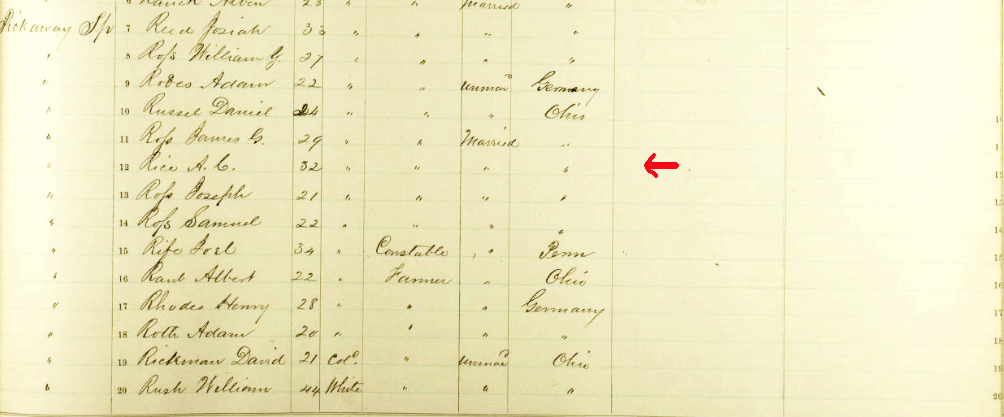 6 Rauch Alben 23 " " Married "
Pickaway Tp 7 Reed Josiah 33 " " " "
" 8 Roſs William G. 27 " " " "
" 9 Robes Adam 22 " " Unmard Germany
" 10 Russel Daniel 24 " " " Ohio 10
" 11 Roſs James G. 29 " " Married " 11
" 12 Rice A. C. 32 " " " " 12
" 13 Roſs Joseph 21 " " " " 13
" 14 Roſs Samuel 22 " " " " 14
" 15 Rife Joel 34 " Constable " Penn 15
" 16 Raub Albert 22 " Farmer " Ohio 16
" 17 Rhodes Henry 28 " " " Germany 17
" 18 Roth Adam 20 " " " " 18
" 19 Rickman David 21 Cold. " Unmard Ohio 19
" 20 Rush William 44 White " " " 20